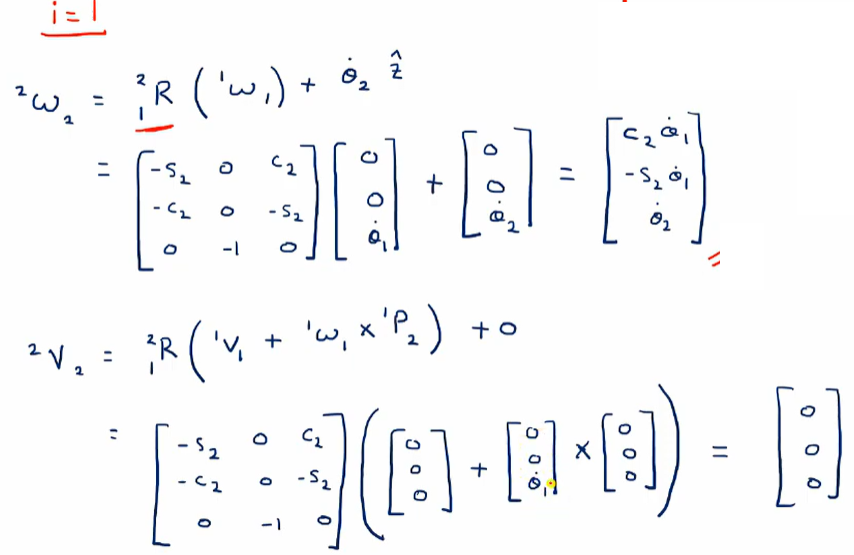 i = 1
²ω₂ = ²₁R (¹ω₁) + θ̇₂ ẑ
= [-S₂ 0 C₂; -C₂ 0 -S₂; 0 -1 0] [0; 0; θ̇₁] + [0; 0; θ̇₂] = [C₂ θ̇₁; -S₂ θ̇₁; θ̇₂]
²V₂ = ²₁R (¹V₁ + ¹ω₁ × ¹P₂) + 0
= [-S₂ 0 C₂; -C₂ 0 -S₂; 0 -1 0] ([0; 0; 0] + [0; 0; θ̇₁] × [0; 0; 0]) = [0; 0; 0]